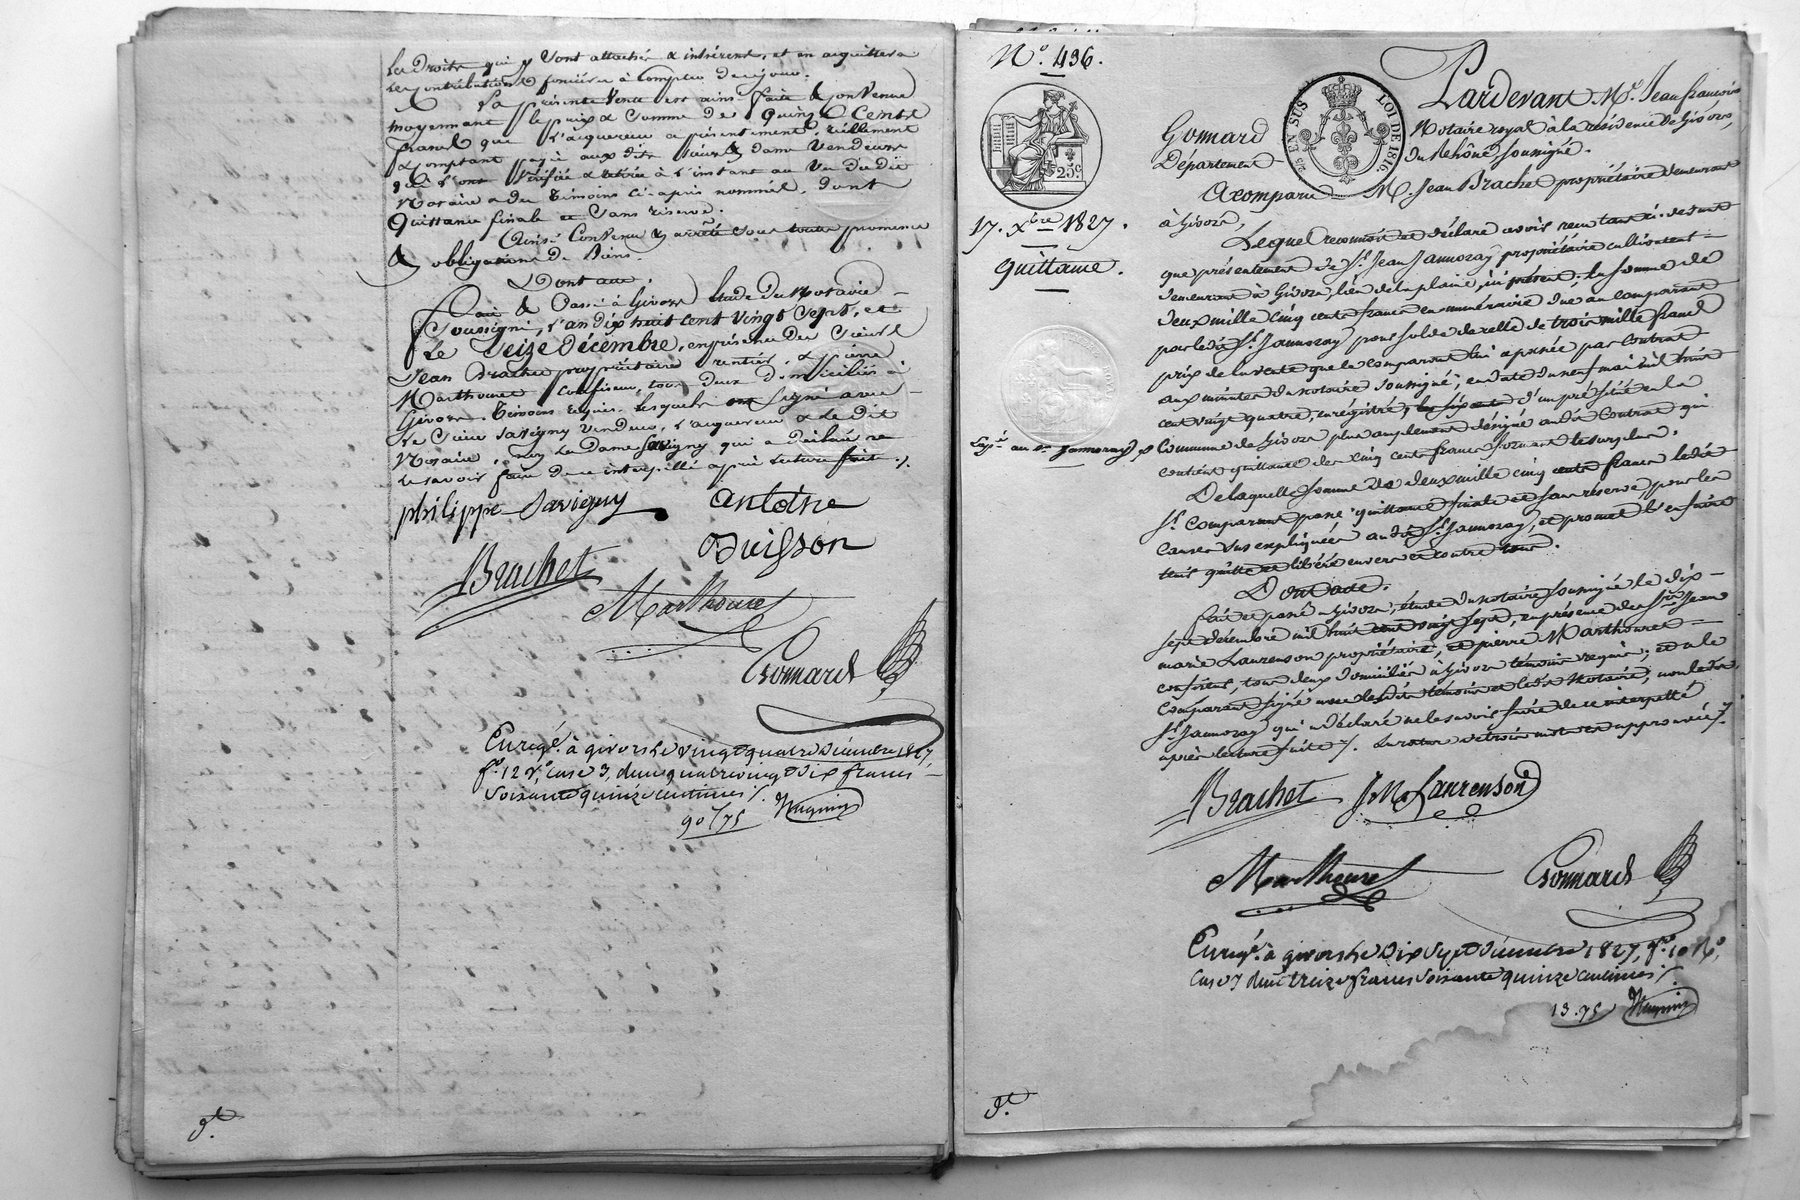 les droits qui y sont attachés & inhérents, et en acquittera
les contributions foncières à compter de ce jour.
La présente vente est ainsi faite & convenue
moyennant le prix & somme de quinze cents
francs que l'acquéreur a présentement, réellement
& comptant payée aux dits sieur & dame vendeurs
qui l'ont vérifiée & retirée à l'instant au vu du dit
Notaire & des témoins ci-après nommés, dont
Quittance finale et sans réserve.
Ainsi convenu & arrêté sous toutes promesses
& obligations de biens.
Dont acte.
Fait & passé à Givors étude du Notaire
soussigné, l'an dix huit cent vingt sept, et
le seize décembre, en présence des sieurs
Jean Brachet propriétaire rentier, & pierre
Marthouret confiseur, tous deux domiciliés à
Givors. Témoins requis, lesquels ont signé avec
le sieur Savigny vendeur, l'acquéreur & le dit
Notaire, non la dame Savigny qui a déclaré ne
le savoir faire de ce interpellée après lecture faite ./.
philippe Savigny antoine
Buisson
Brachet
Marthouret
Gonnard
Enregé. à givors le vingt quatre décembre 1827,
fo. 12 vo, case 3, reçu quatre vingt dix francs
soixante quinze centimes ./.
90/75
gt.
No. 436.
25c
2/15 EN SUS LOI DE 1816
17. Xbre 1827.
Quittance.
Expé. au sr. Jannoray
Pardevant Me. Jean François
Gonnard Notaire royal à la résidence de Givors,
Département du Rhône soussigné.
A comparu M. Jean Brachet propriétaire demeurant
à Givors,
Lequel reconnoit et déclare avoir reçu tant ci-devant
que présentement de Sr. Jean Jannoray propriétaire cultivateur
demeurant à Givors, lieu de la plaine, ici présent, la somme de
deux mille cinq cents francs en numéraire due au comparant
par ledit Sr. Jannoray pour solde de celle de trois mille francs
prix de la vente que le comparant lui a passée par contrat
aux minutes du notaire soussigné, en date du neuf mai mil huit
cent vingt quatre, enregistré, d'un pré situé en la
Commune de Givors plus amplement désigné audit Contrat qui
contient quittance des cinq cents francs formant le surplus.
De laquelle somme de deux mille cinq cents francs ledit
Sr. Comparant passe quittance finale et sans réserve, pour les
causes sus expliquées audit Sr. Jannoray, et promet l'en faire
tenir quitte et libéré envers et contre tous.
Dont acte.
Fait et passé à Givors, étude du notaire soussigné le dix
sept décembre mil huit cent vingt sept, en présence des Srs. Jean
marie Laurenson propriétaire, et pierre Marthouret
confiseur, tous deux domiciliés à Givors témoins requis; et a le
Comparant signé avec lesdits témoins et ledit Notaire, non ledit
Sr. Jannoray qui a déclaré ne le savoir faire de ce interpellé
après lecture faite ./. La rature de trois mots est approuvée ./.
Brachet J M Laurenson
Marthouret Gonnard
Enregé. à givors le dix sept décembre 1827, fo. 10 Ro,
case 7 reçu treize francs soixante quinze centimes ./.
13.75
gt.